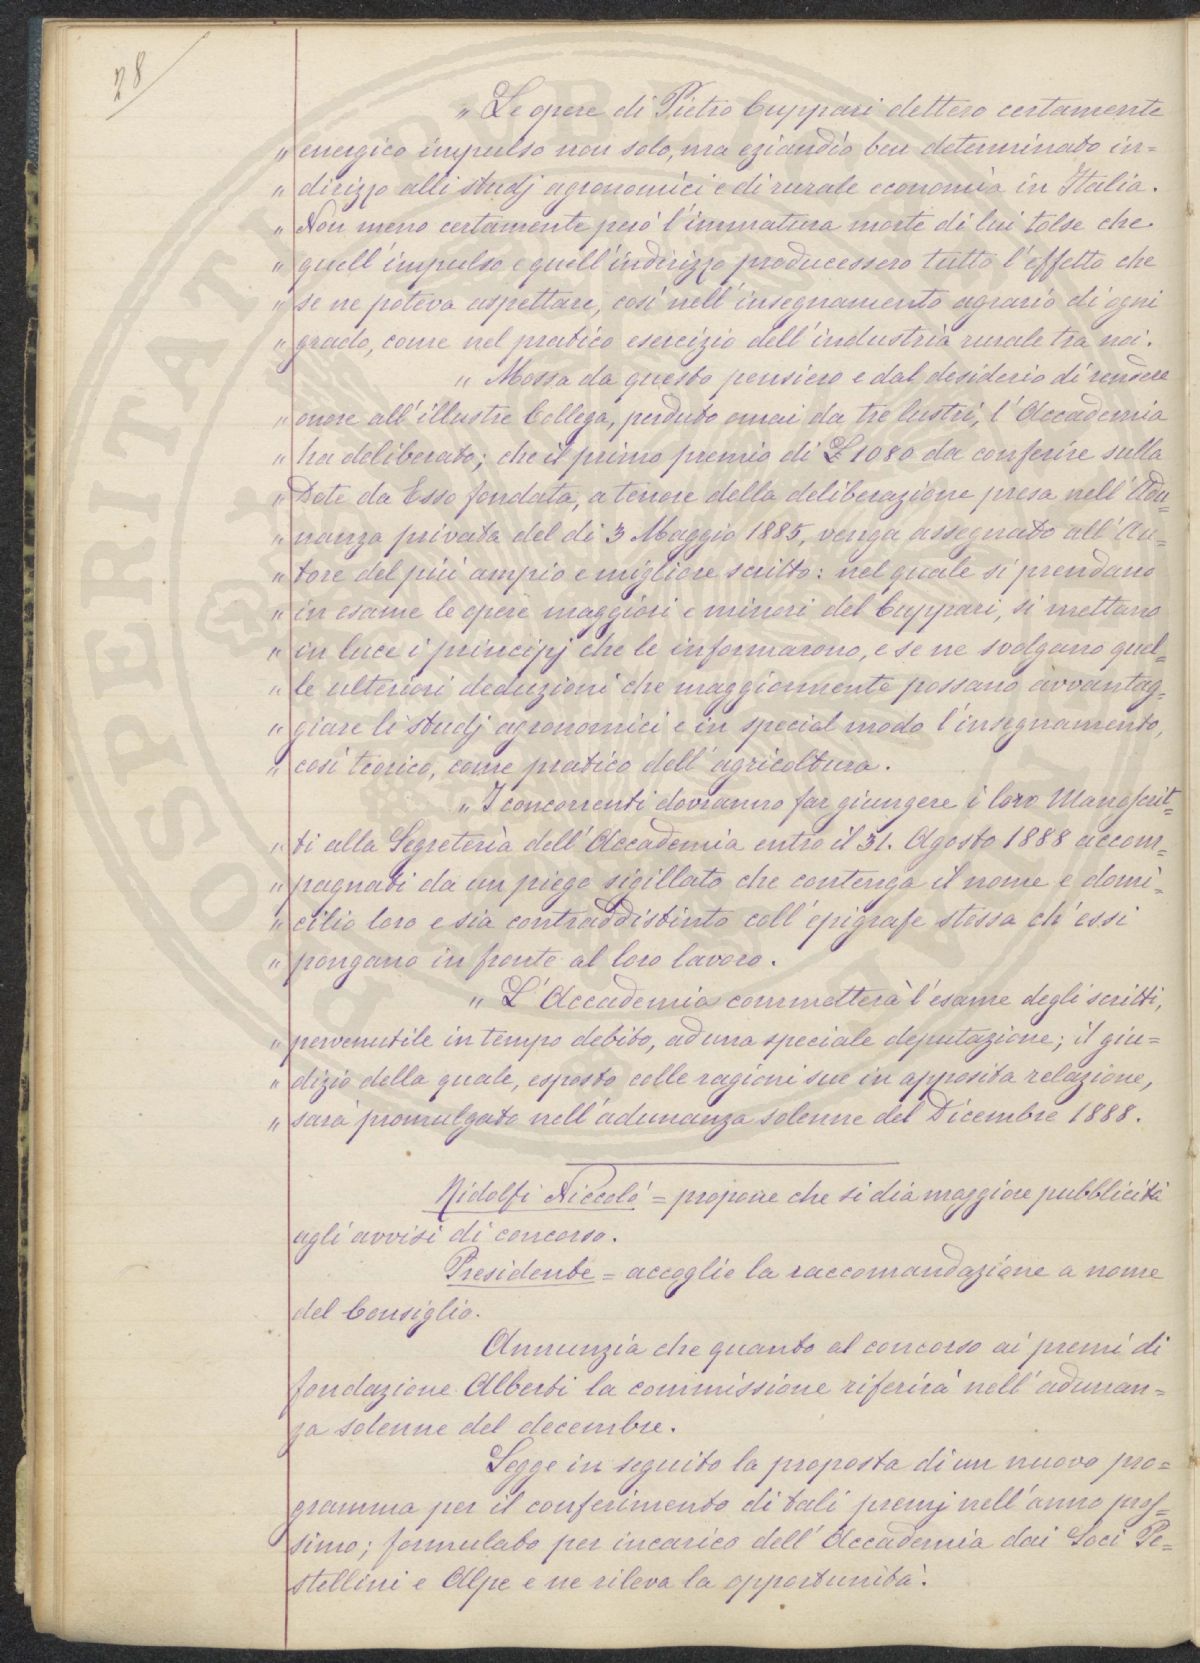 28
„ Le opere di Pietro Cuppari dettero certamente
„ energico impulso non solo, ma eziandio ben determinato in=
„ dirizzo alli studj agronomici e di rurale economia in Italia.
„ Non meno certamente però l'immatura morte di lui tolse che
„ quell'impulso e quell'indirizzo producessero tutto l'effetto che
„ se ne poteva aspettare, così nell'insegnamento agrario di ogni
„ grado, come nel pratico esercizio dell'industria rurale tra noi.
„ Mossa da questo pensiero e dal desiderio di rendere
„ onore all'illustre Collega, perduto omai da tre lustri, l'Accademia
„ ha deliberato; che il primo premio di £ 1080 da conferire sulla
„ Dote da Esso fondata, a tenore della deliberazione presa nell'Adu=
„ nanza privata del di 3 Maggio 1885, venga assegnato all'Au=
„ tore del più ampio e migliore scritto: nel quale si prendano
„ in esame le opere maggiori e minori del Cuppari, si mettano
„ in luce i principj che le informarono, e se ne svolgano quel=
„ le ulteriori deduzioni che maggiormente possano avvantag=
„ giare li studj agronomici e in special modo l'insegnamento,
„ così teorico, come pratico dell'agricoltura.
„ I concorrenti dovranno far giungere i loro Manoscrit=
„ ti alla Segreteria dell'Accademia entro il 31. Agosto 1888 accom=
„ pagnati da un piego sigillato che contenga il nome e domi=
„ cilio loro e sia contraddistinto coll'epigrafe stessa ch'essi
„ pongano in fronte al loro lavoro.
„ L'Accademia commetterà l'esame degli scritti,
„ pervenutile in tempo debito, ad una speciale deputazione; il giu=
„ dizio della quale, esposto colle ragioni sue in apposita relazione,
„ sarà promulgato nell'adunanza solenne del Dicembre 1888.
Ridolfi Niccolò = propone che si dia maggiore pubblicità
agli avvisi di concorso.
Presidente = accoglie la raccomandazione a nome
del Consiglio.
Annunzia che quanto al concorso ai premi di
fondazione Alberti la commissione riferirà nell'adunan=
za solenne del decembre.
Legge in seguito la proposta di un nuovo pro=
gramma per il conferimento di tali premj nell'anno pros=
simo; formulato per incarico dell'Accademia dai Soci Pe=
stellini e Alpe e ne rileva la opportunità.
PROSPERITATI PUBLICAE AUGENDAE